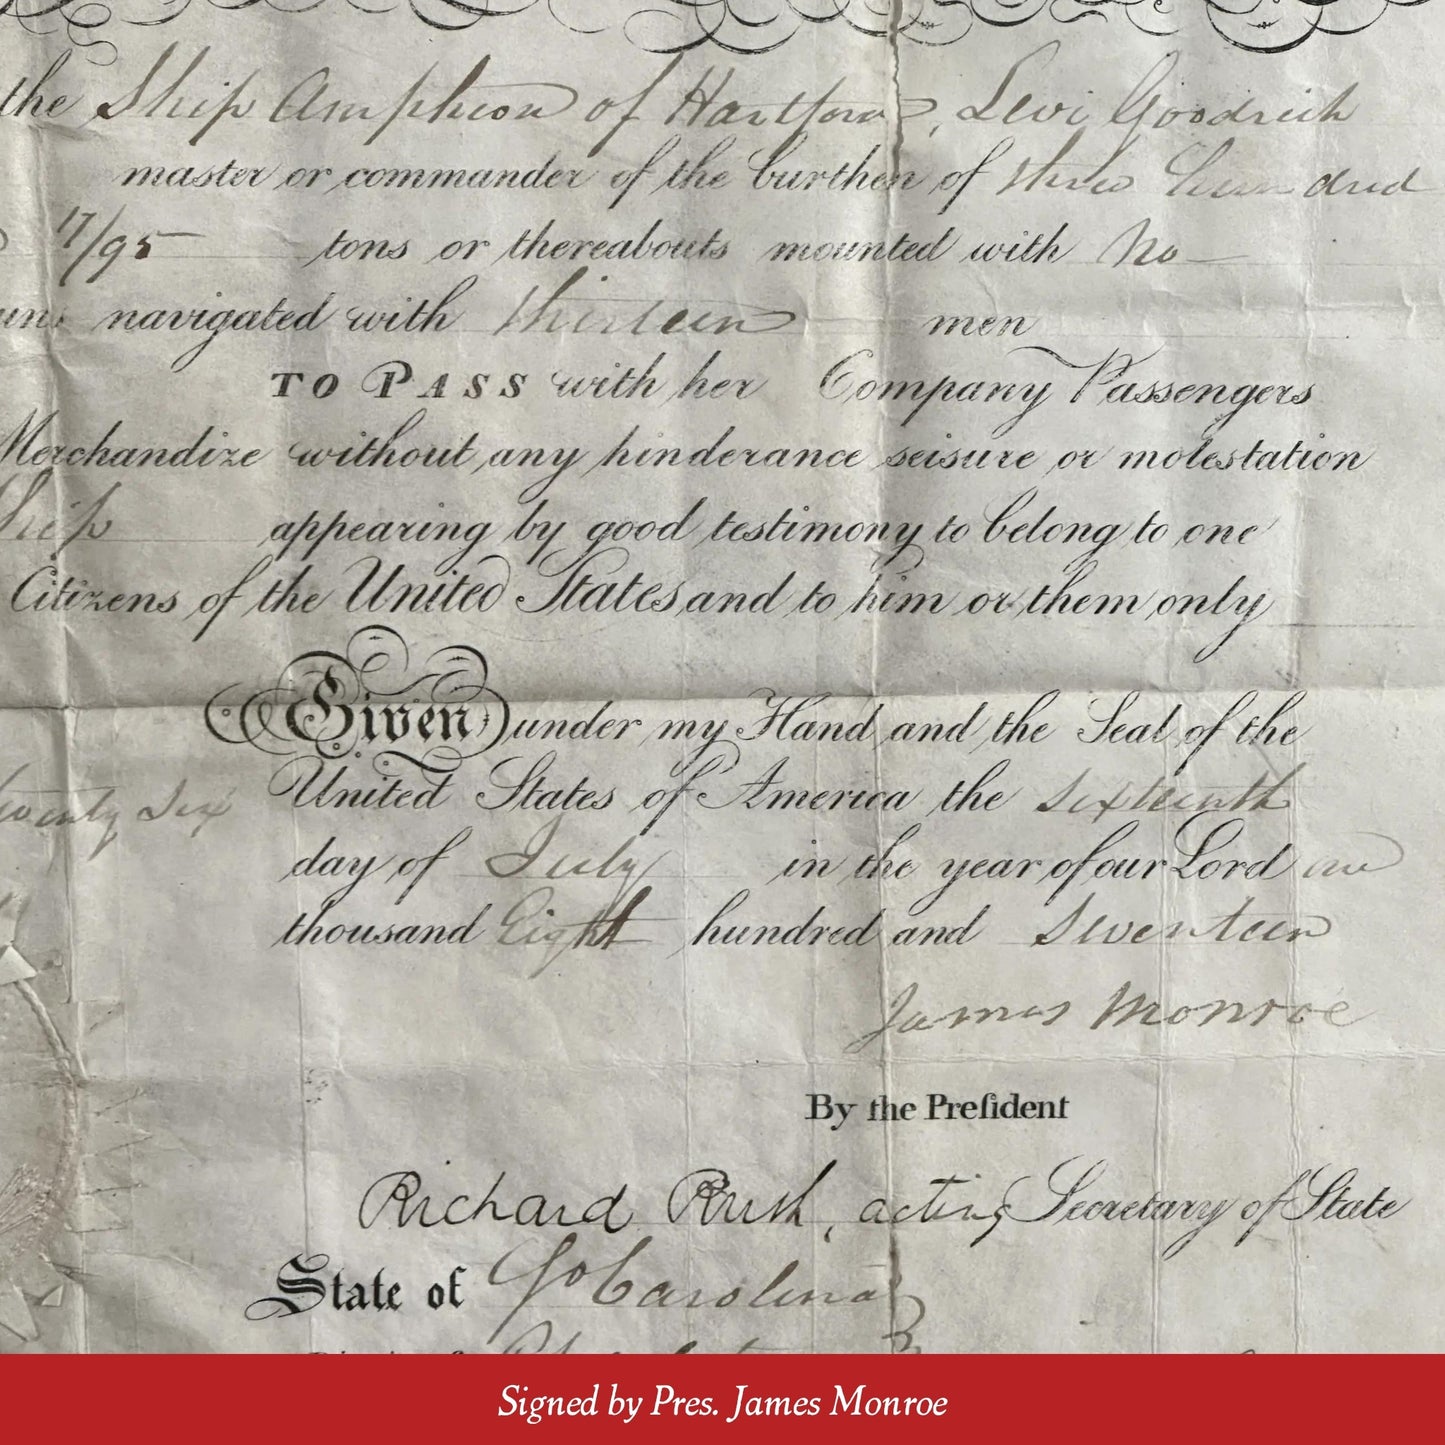 the Ship Amphion of Hartford, Levi Goodrich
master or commander of the burthen of three hundred
17/95 tons or thereabouts mounted with no
navigated with thirteen men
TO PASS with her Company Passengers
Merchandize without any hinderance seisure or molestation
Ship appearing by good testimony to belong to one
Citizens of the United States and to him or them only
Given under my Hand and the Seal of the
twenty six United States of America the sixteenth
day of July in the year of our Lord one
thousand Eight hundred and Seventeen
James Monroe
By the Preſident
Richard Rush, acting Secretary of State
State of So Carolina
Signed by Pres. James Monroe